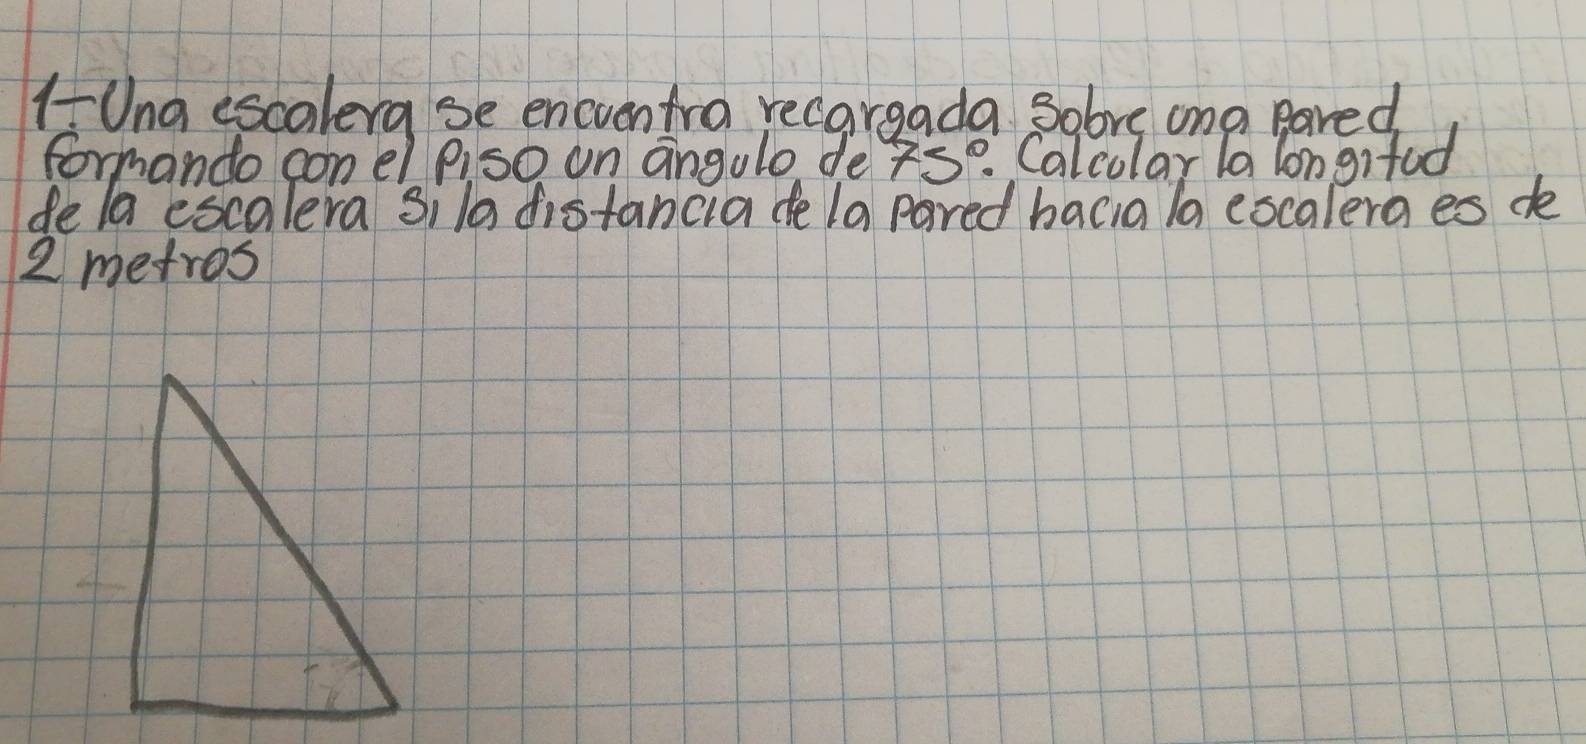 1- Una escalera se encuentra recargada sobre una pared,
formando con el piso un ángulo de 75°. Calcular la longitud
de la escalera si la distancia de la pared hacia la escalera es de
2 metros